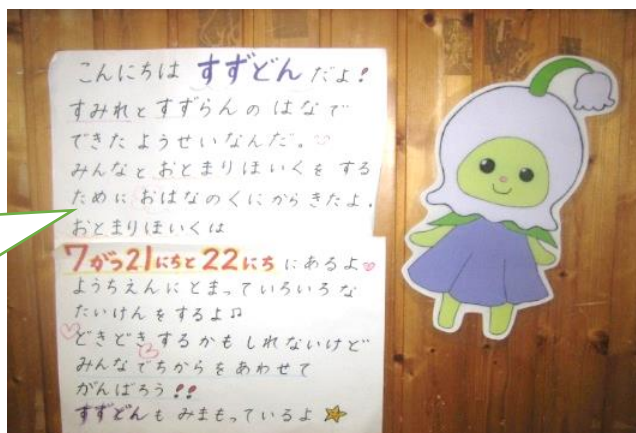 こんにちは すずどん だよ!
すみれとすずらんの はなで
できた ようせいなんだ。♡
みんなと おとまりほいくを する
ために おはなのくにから きたよ。
おとまりほいくは
7がつ21にちと22にち にあるよ♡
ようちえんにとまっていろいろな
たいけんをするよ♫
どきどきするかもしれないけど
みんなでちからをあわせて
がんばろう!!
すずどんも みまもっているよ☆